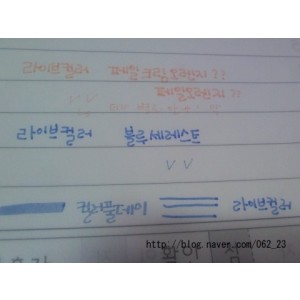 라이브컬러 페일크림오렌지??
페일오렌지??
라이브컬러 블루세레스트
컬러풀데이 라이브컬러
http://blog.naver.com/062_23